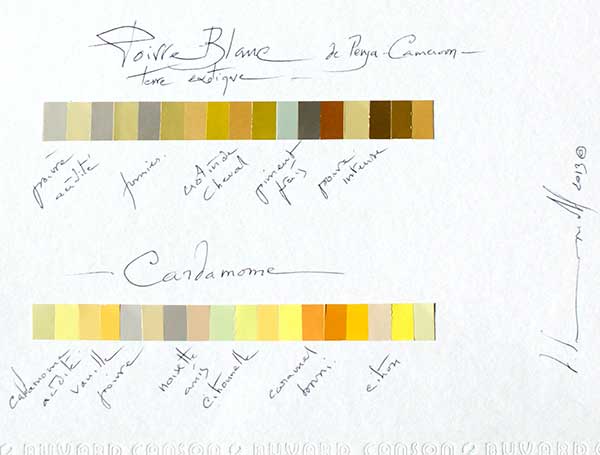 Poivre Blanc de Penja-Cameroun
terre exotique
poivre acidité
fumier
crotin de cheval
piment frais
poivre intense
2013 ©
Cardamome
cardamome acidité
vanille
poivre
noisette
anis
citronnelle
caramel
bruni
citron
BUVARD CANSON BUVARD CANSON BUVARD